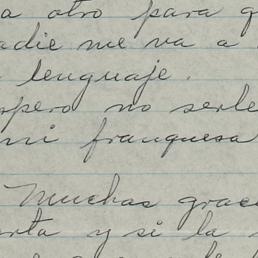 a otro para q
adie me va a
lenguaje.
spero no serle
mi franquesa
Muchas grac
rta y si la